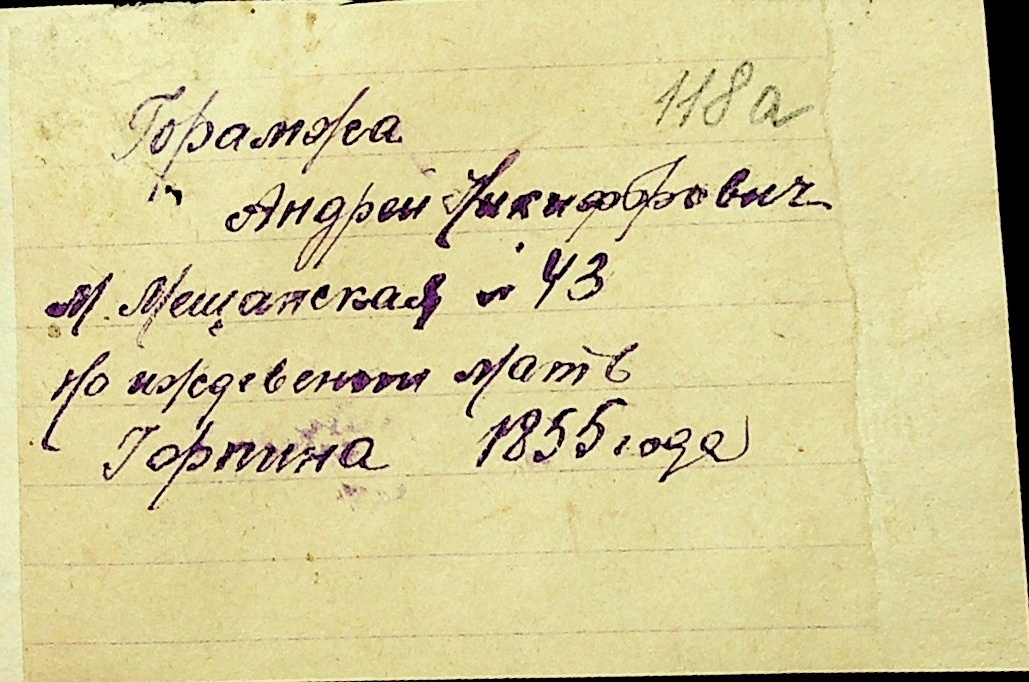 118а
Горамжа
Андрей Никифорович
М. Мещанская № 43
На иждевении мать
Горпина 1855 года